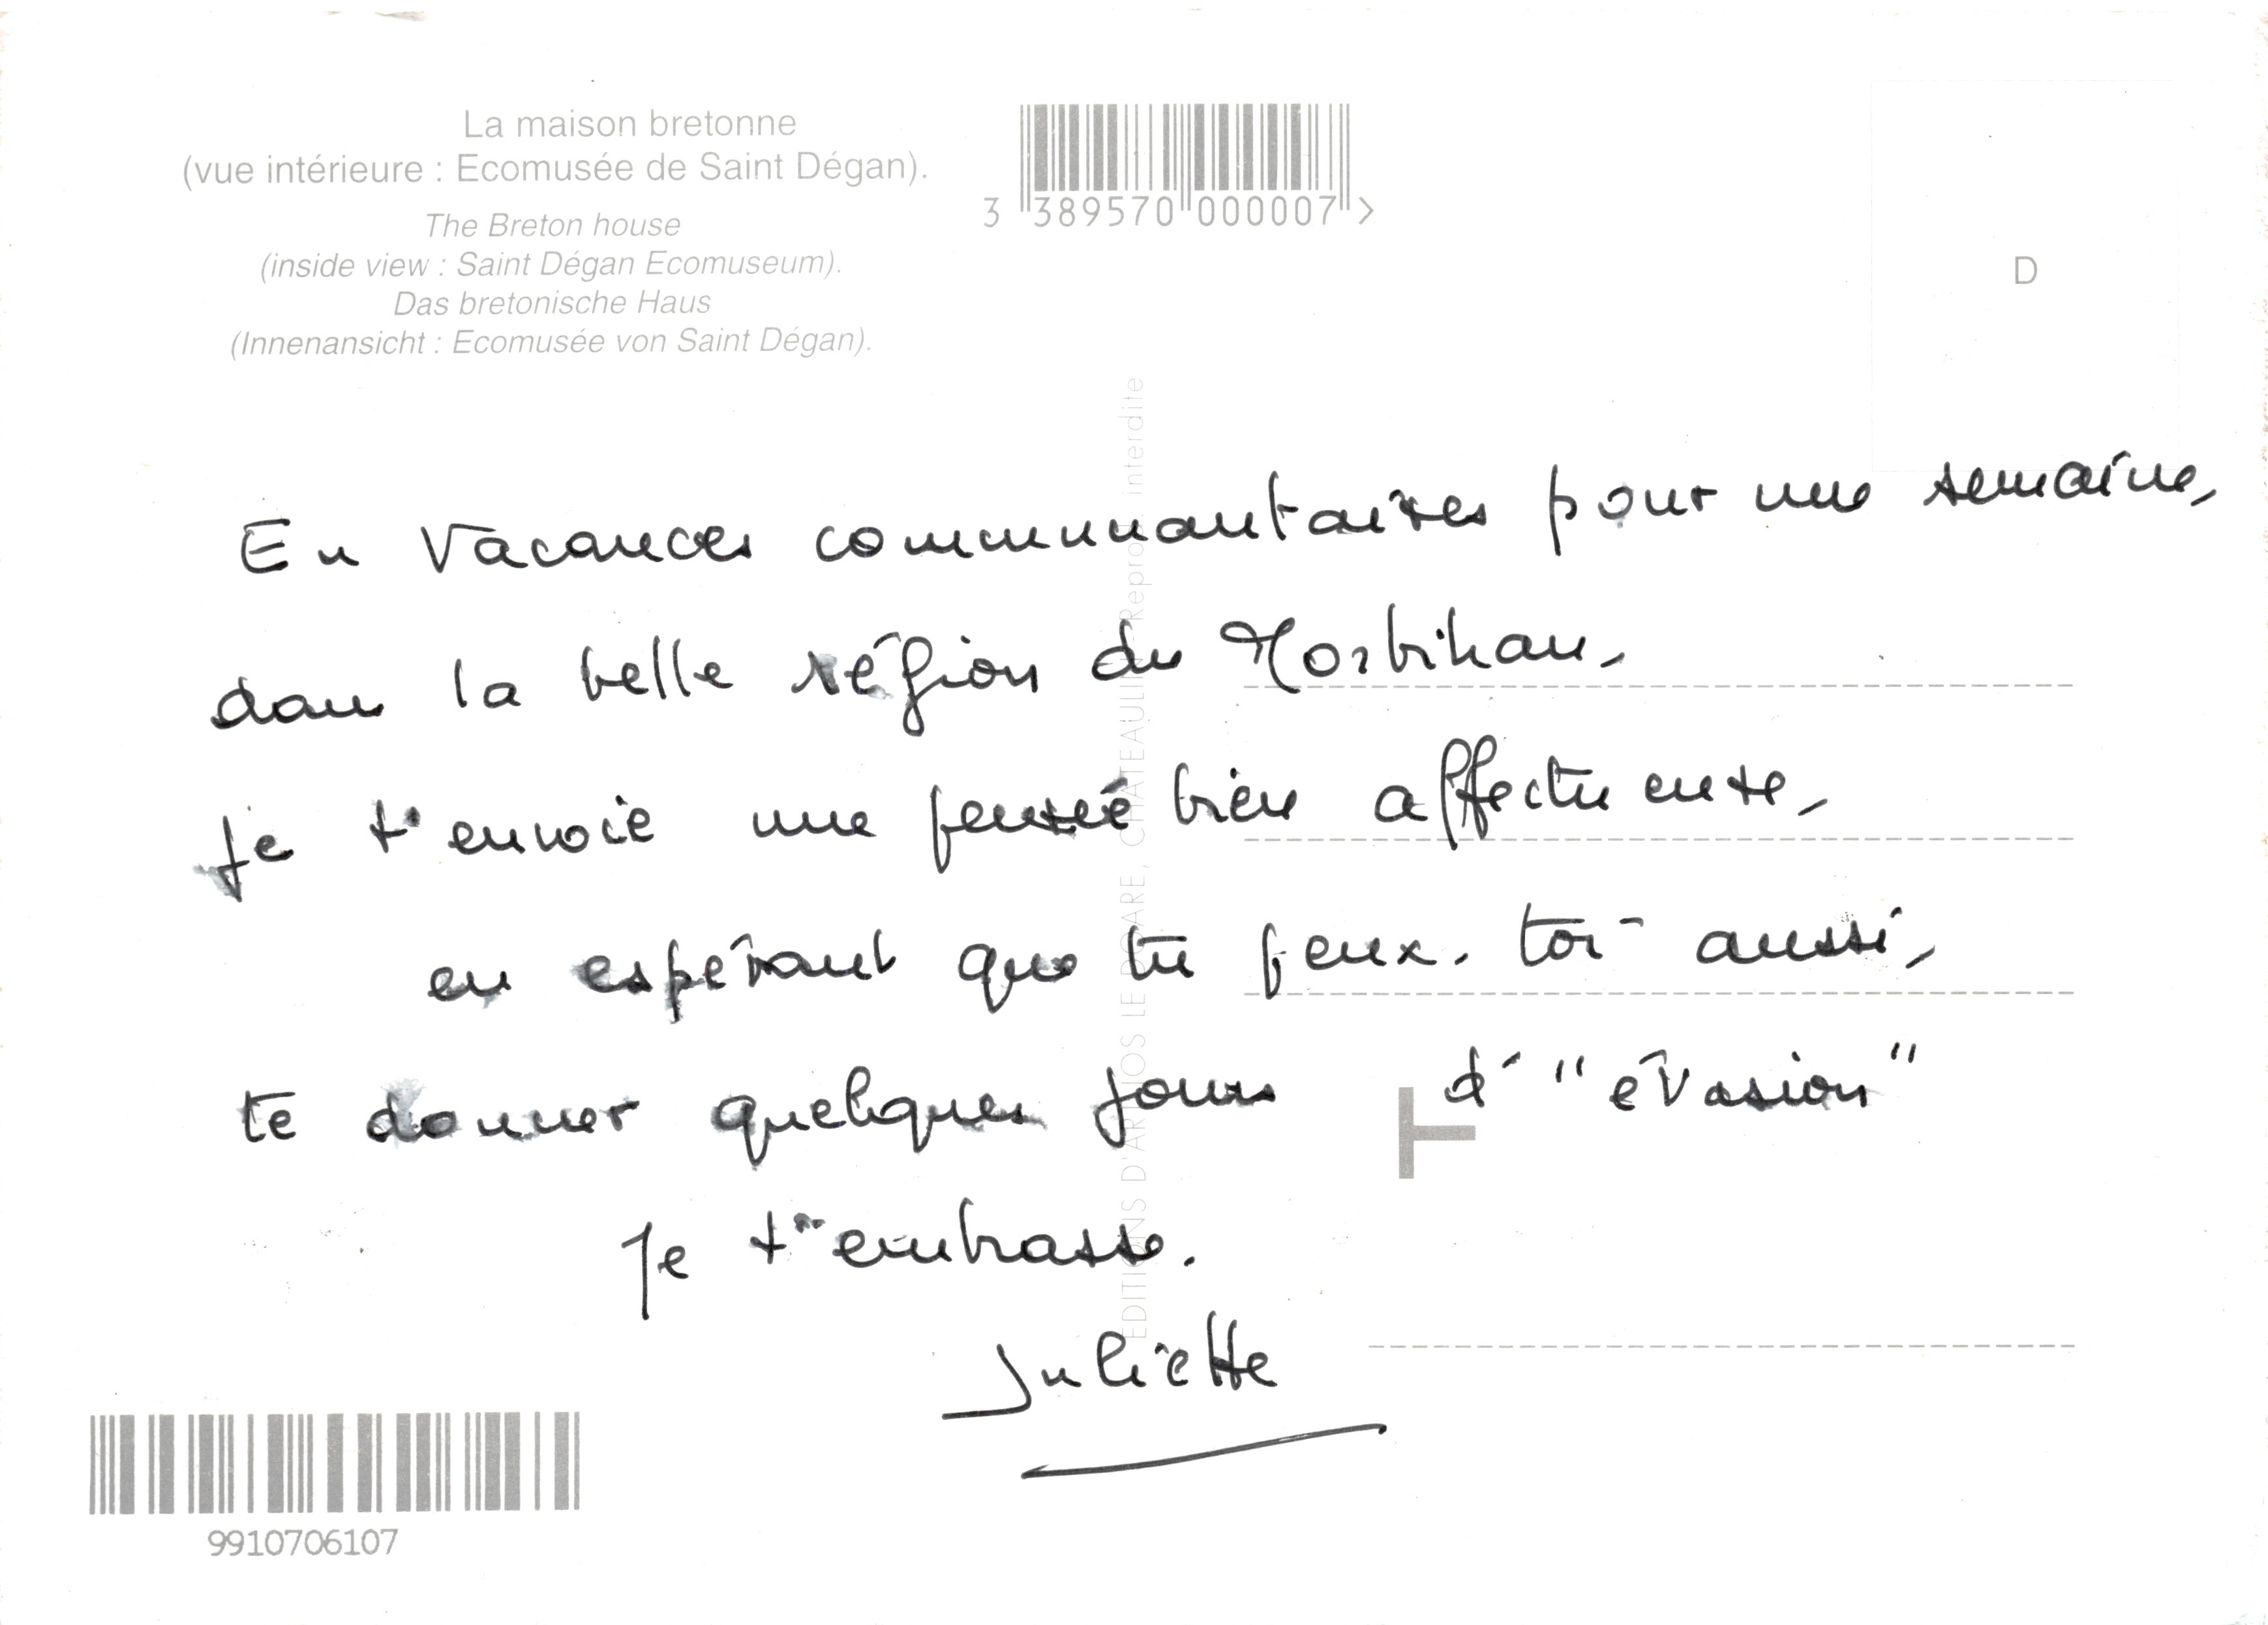 La maison bretonne
(vue intérieure : Ecomusée de Saint Dégan).
The Breton house
(inside view : Saint Dégan Ecomuseum).
Das bretonische Haus
(Innenansicht : Ecomusée von Saint Dégan).
3 389570 000007 >
D
En vacances communautaires pour une semaine,
dans la belle région du Morbihan,
je t'envoie une pensée bien affectueuse,
en espérant que tu peux, toi aussi,
te donner quelques jours d' "évasion"
Je t'embrasse.
Juliette
EDITIONS D'ART JOS LE DOARE, CHATEAULIN - Reprod. interdite
T
9910706107